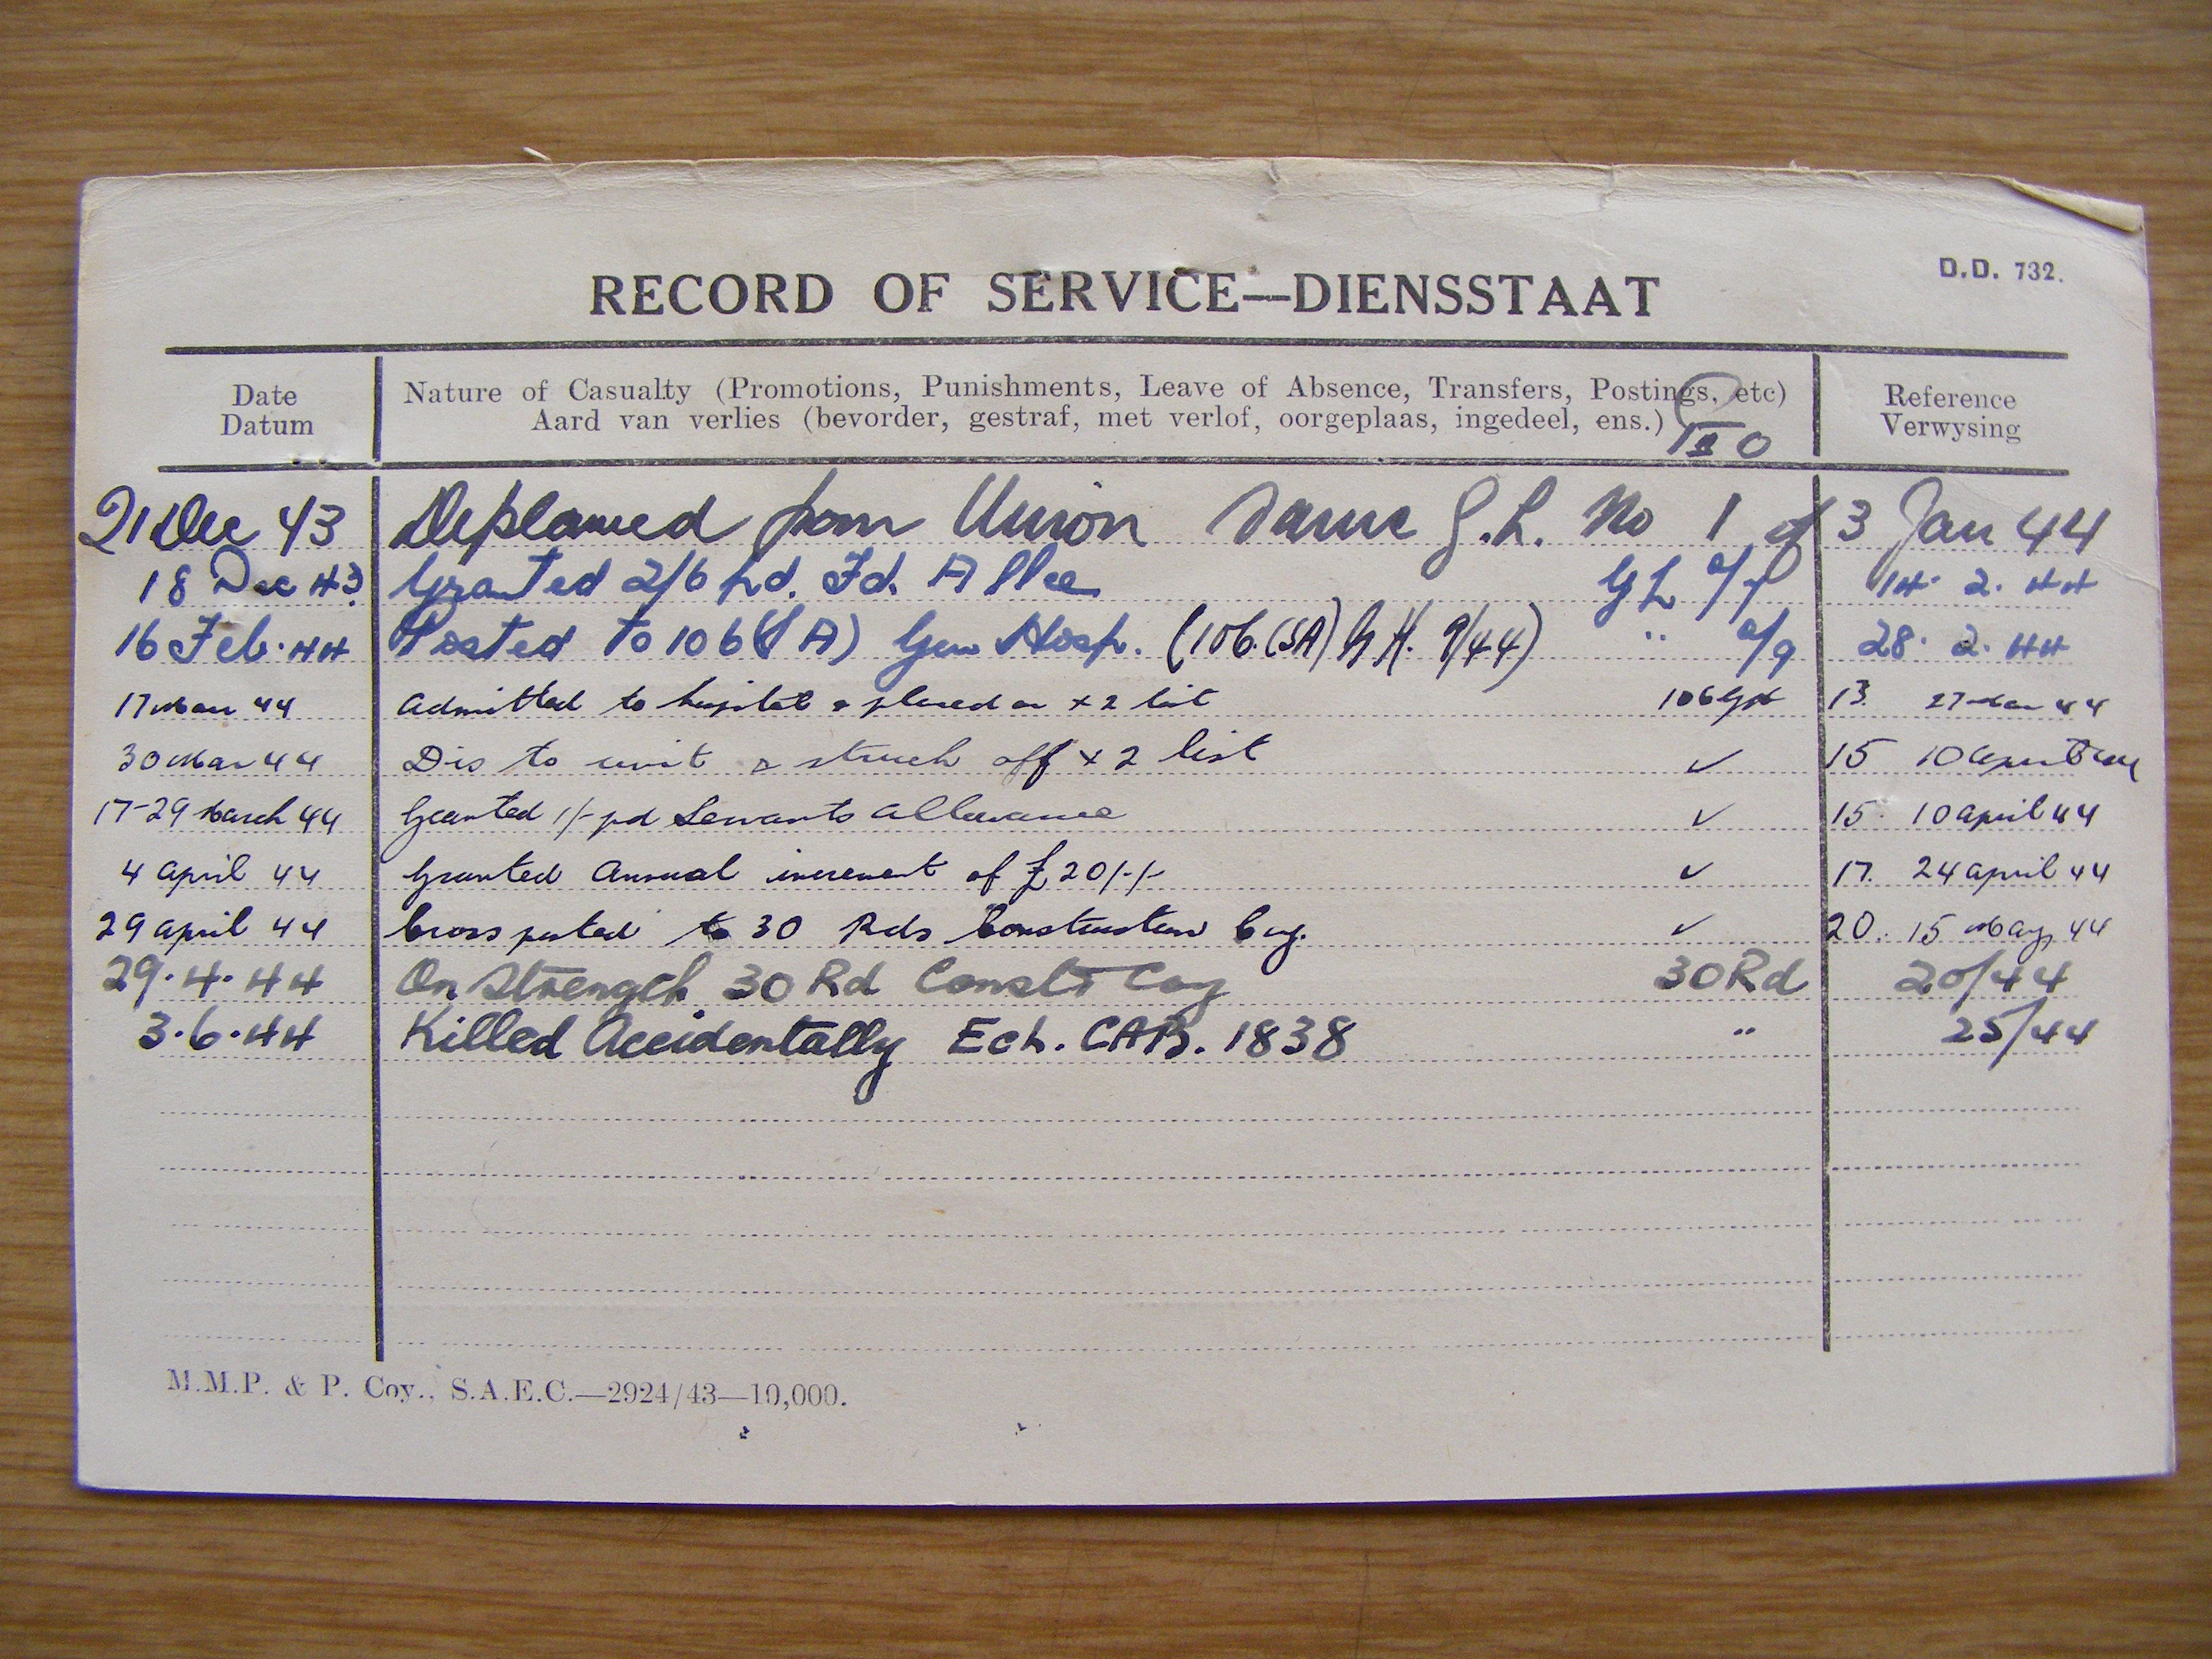 D.D. 732.
RECORD OF SERVICE—DIENSSTAAT
Date Nature of Casualty (Promotions, Punishments, Leave of Absence, Transfers, Postings, etc) Reference
Datum Aard van verlies (bevorder, gestraf, met verlof, oorgeplaas, ingedeel, ens.) Verwysing
21 Dec 43 Deplaned from Union G.L. No 1 of 3 Jan 44
18 Dec 43 Granted 2/6 p.d. Fd. Allce GL o/7 14. 2. 44
16 Feb. 44 Posted to 106 (SA) Gen Hosp. (106. (SA) G H. 9/44) " o/9 28. 2. 44
17 Mar 44 Admitted to hospital & placed on x 2 list 106 13. 27 Mar 44
30 Mar 44 Dis to unit & struck off x 2 list ✓ 15 10 April
17-29 March 44 Granted 1/- pd Servants Allowance ✓ 15. 10 April 44
4 April 44 Granted Annual increment of £20/-/- ✓ 17. 24 April 44
29 April 44 Cross posted to 30 Rds Construction Coy. ✓ 20. 15 May 44
29.4.44 On Strength 30 Rd Constr Coy 30 Rd 20/44
3.6.44 Killed Accidentally Ech. CAS. 1838 " 25/44
M.M.P. & P. Coy., S.A.E.C.—2924/43—10,000.